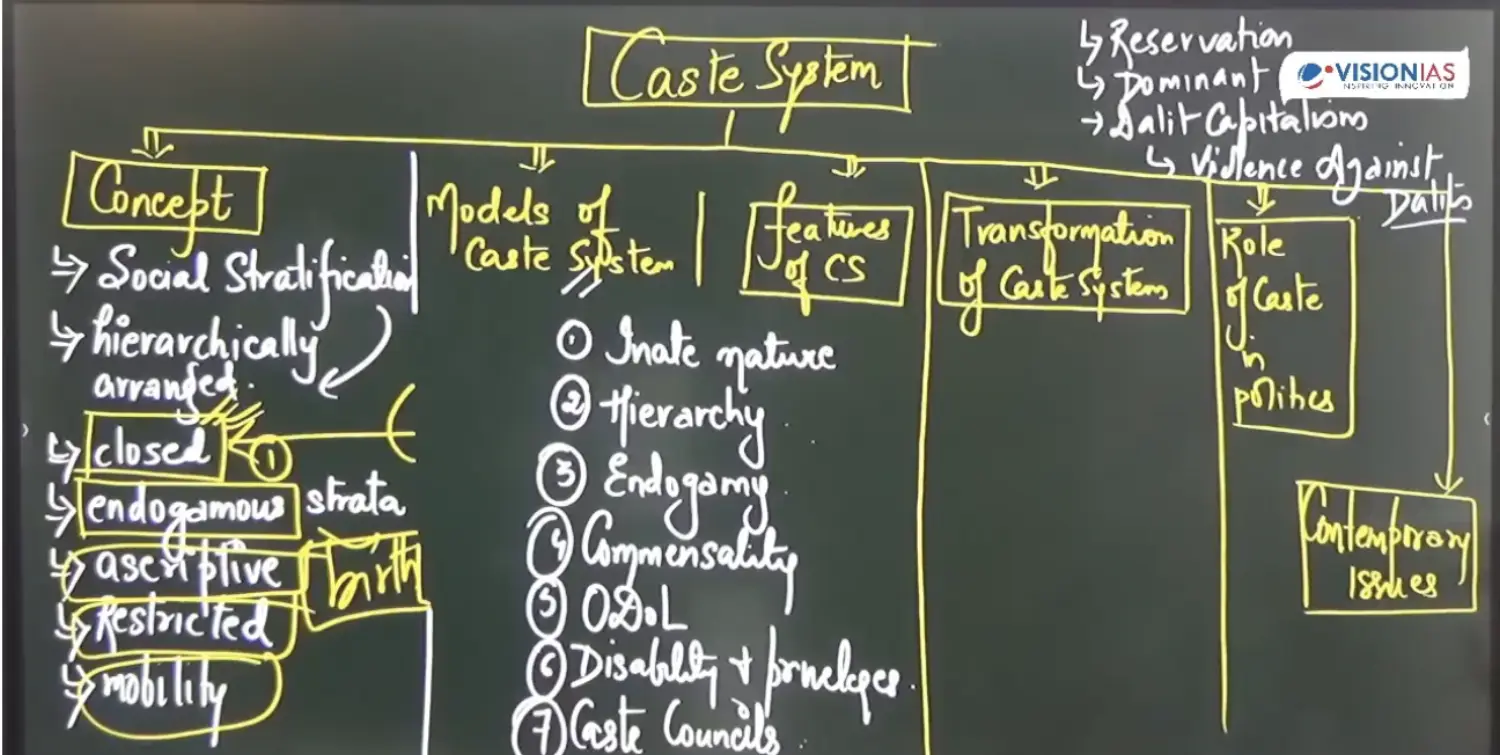 Caste System
↳ Reservation
↳ Dominant
→ Dalit Capitalism
↳ Violence Against
Dalits
VISIONIAS
INSPIRING INNOVATION
Concept
↳ Social Stratification
↳ hierarchically
arranged.
↳ closed ①
↳ endogamous strata
↳ ascriptive birth
↳ Restricted
↳ mobility
Models of
Caste System
① Inate nature
② Hierarchy
③ Endogamy
④ Commensality
⑤ ODoL
⑥ Disability +
⑦ Caste Councils
features
of CS
Transformation
of Caste System
Role
of Caste
in
politics
Contemporary
Issues